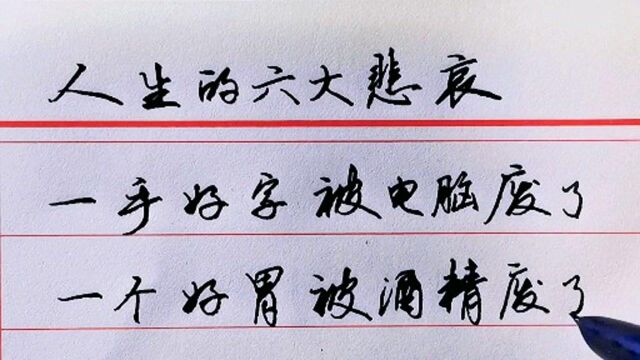 人生的六大悲哀
一手好字被电脑废了
一个好胃被酒精废了